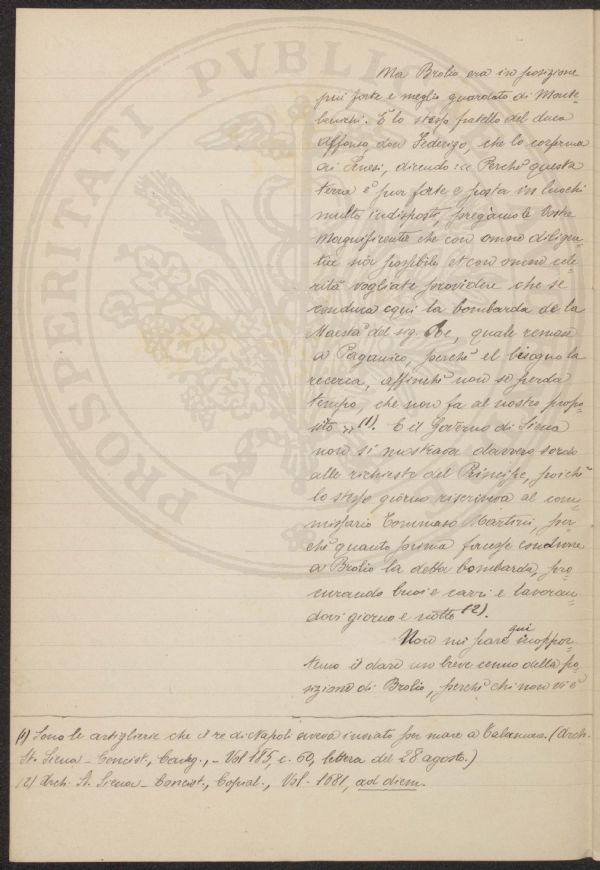 Ma Brolio era in posizione
più forte e meglio guardato di Monte-
benichi. È lo stesso fratello del duca
Alfonso, don Federigo, che lo conferma
ai Senesi, dicendo: « Perchè questa
terra è pur forte e posta in luochi
multo indisposti, pregàmo le Vostre
Magnificentie che con omne diligen-
tia sia possibile et con omne cele-
rità vogliate providere che se
conduca equi la bombarda de la
Maestà del sig. Re, quale remase
a Paganico, perchè el bisogno la
recerca, affinchè non se perda
tempo, che non fa al nostro propo-
sito » (1). E il Governo di Siena
non si mostrava davvero sordo
alle richieste del Principe, poichè
lo stesso giorno riscriveva al com-
missario Tommaso Martini, per-
chè quanto prima facesse condurre
a Brolio la detta bombarda, pro-
curando buoi e carri e lavoran-
dovi giorno e notte (2).
Non mi pare qui inoppor-
tuno il dare un breve cenno della po-
sizione di Brolio, perchè chi non vi è
(1) Sono le artiglierie che il re di Napoli aveva inviato per mare a Talamone. (Arch.
St. Siena - Concist., Carteg., - Vol 185, c. 60, lettera del 28 agosto.)
(2) Arch. St. Siena - Concist., Copial., Vol. 1681, ad diem.
PROSPERITATI PVBLIC